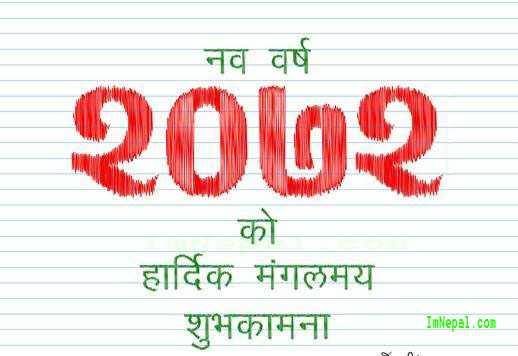 नव वर्ष
२०७२
को
हार्दिक मंगलमय
शुभकामना
ImNepal.com